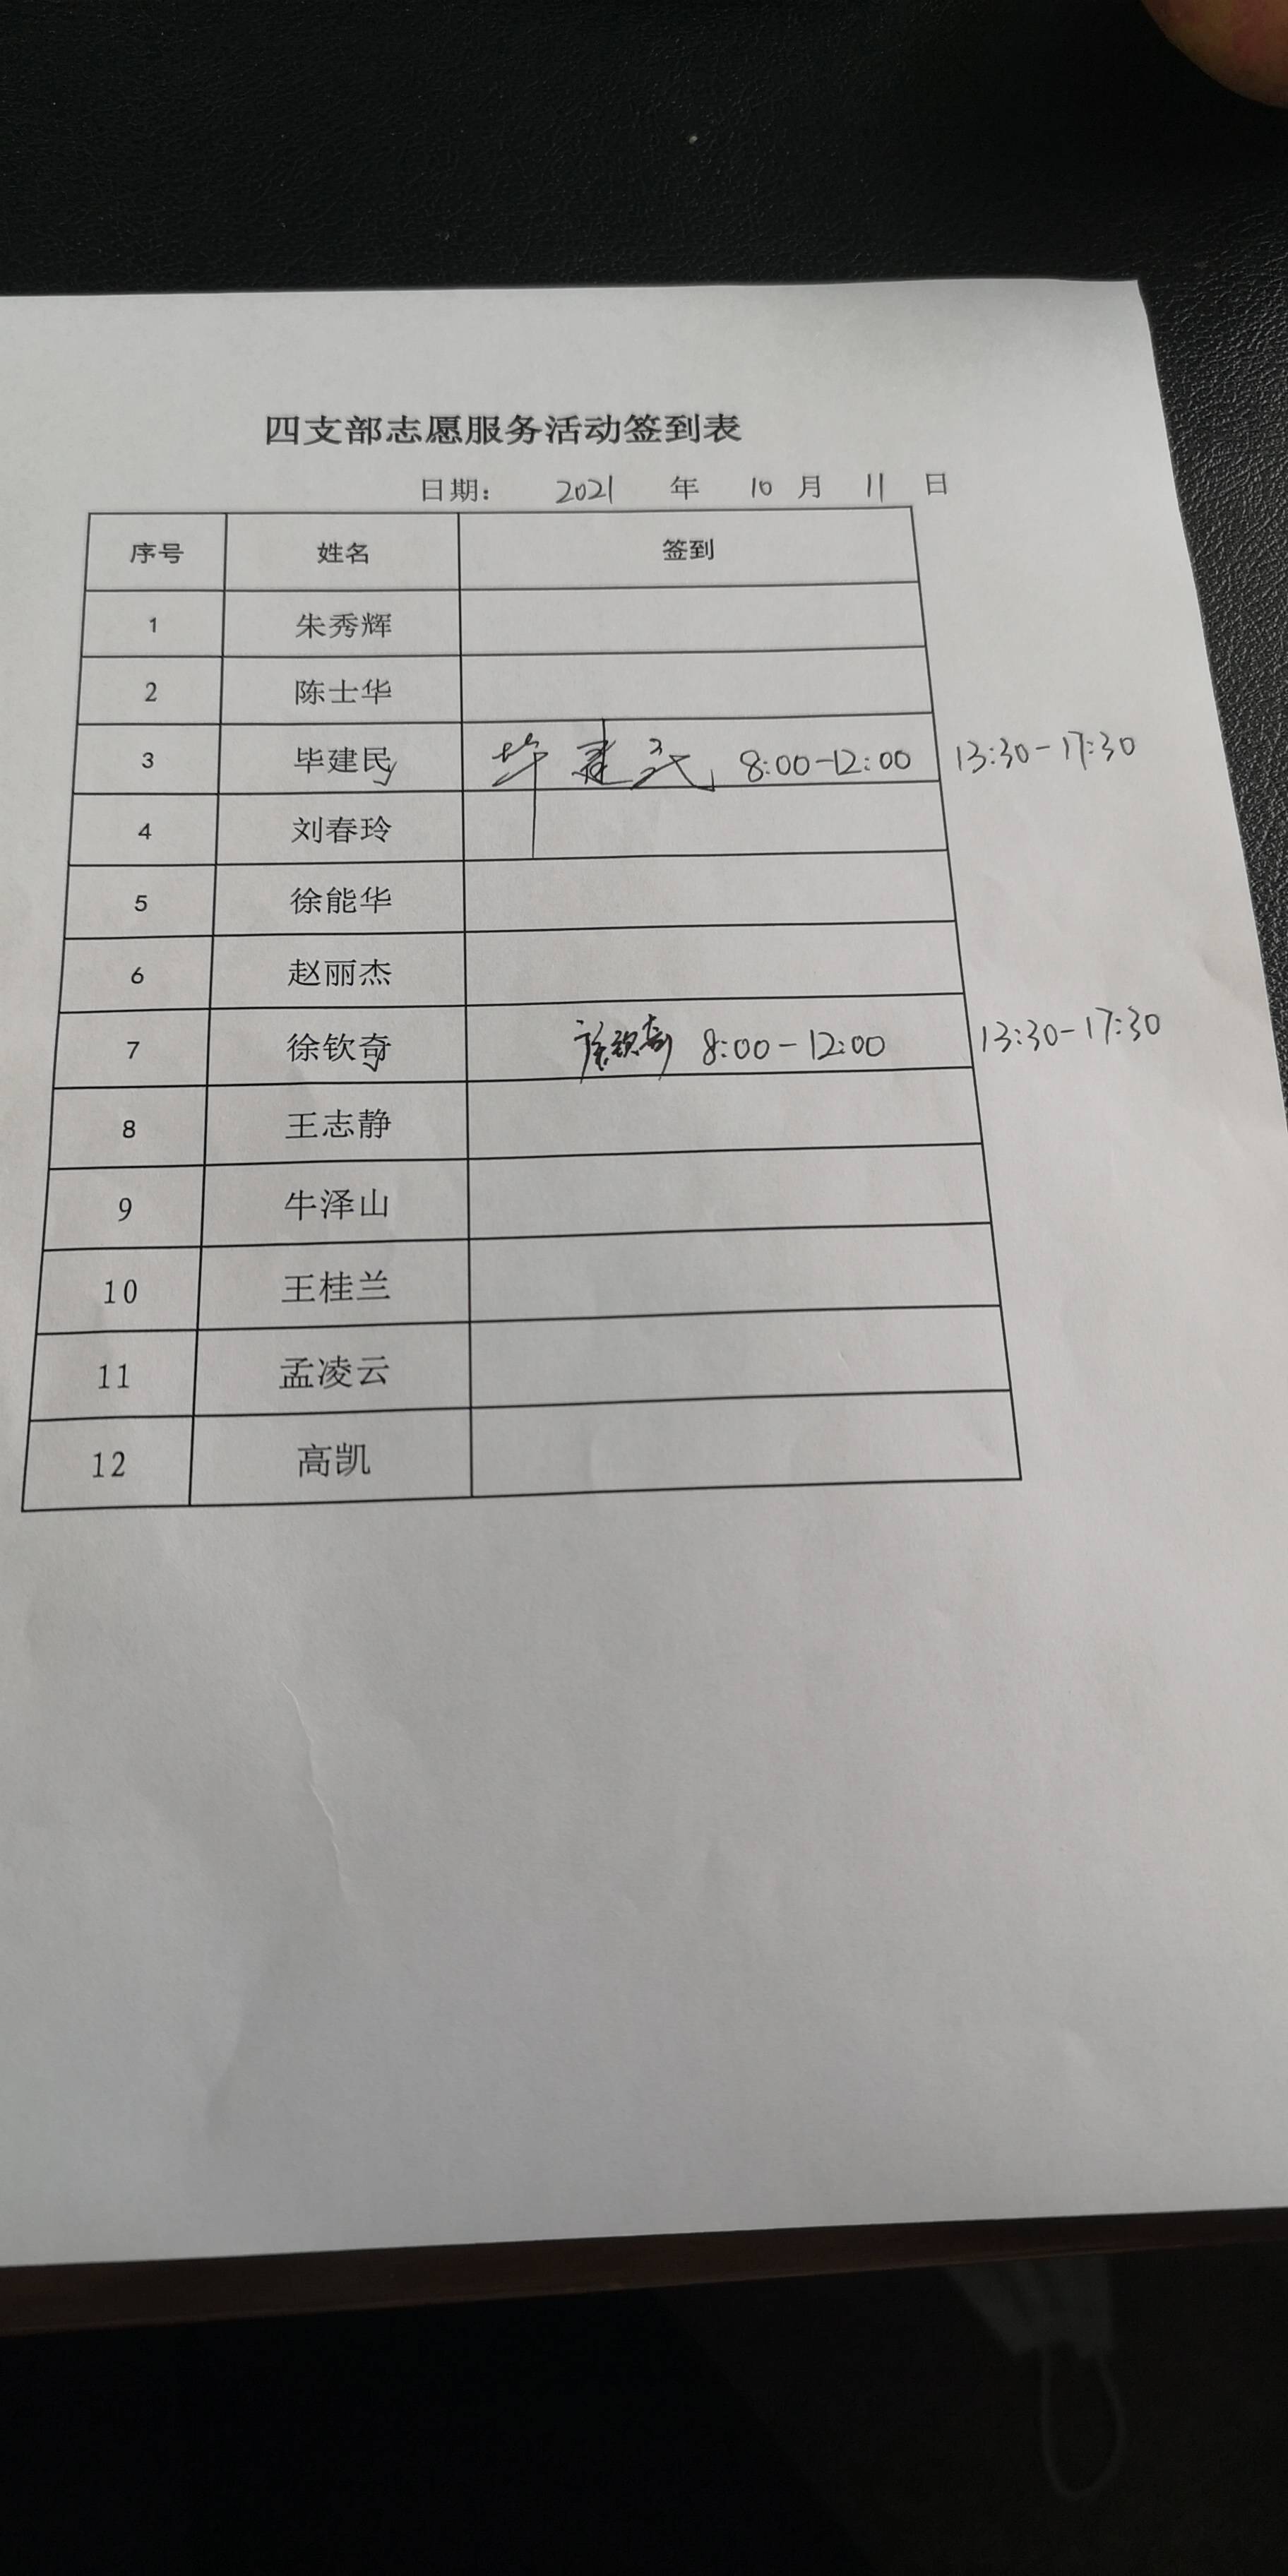 四支部志愿服务活动签到表
日期： 2021 年 10 月 11 日
序号 姓名 签到
1 朱秀辉
2 陈士华
3 毕建民 毕建民 8:00-12:00 13:30-17:30
4 刘春玲
5 徐能华
6 赵丽杰
7 徐钦奇 徐钦奇 8:00-12:00 13:30-17:30
8 王志静
9 牛泽山
10 王桂兰
11 孟凌云
12 高凯